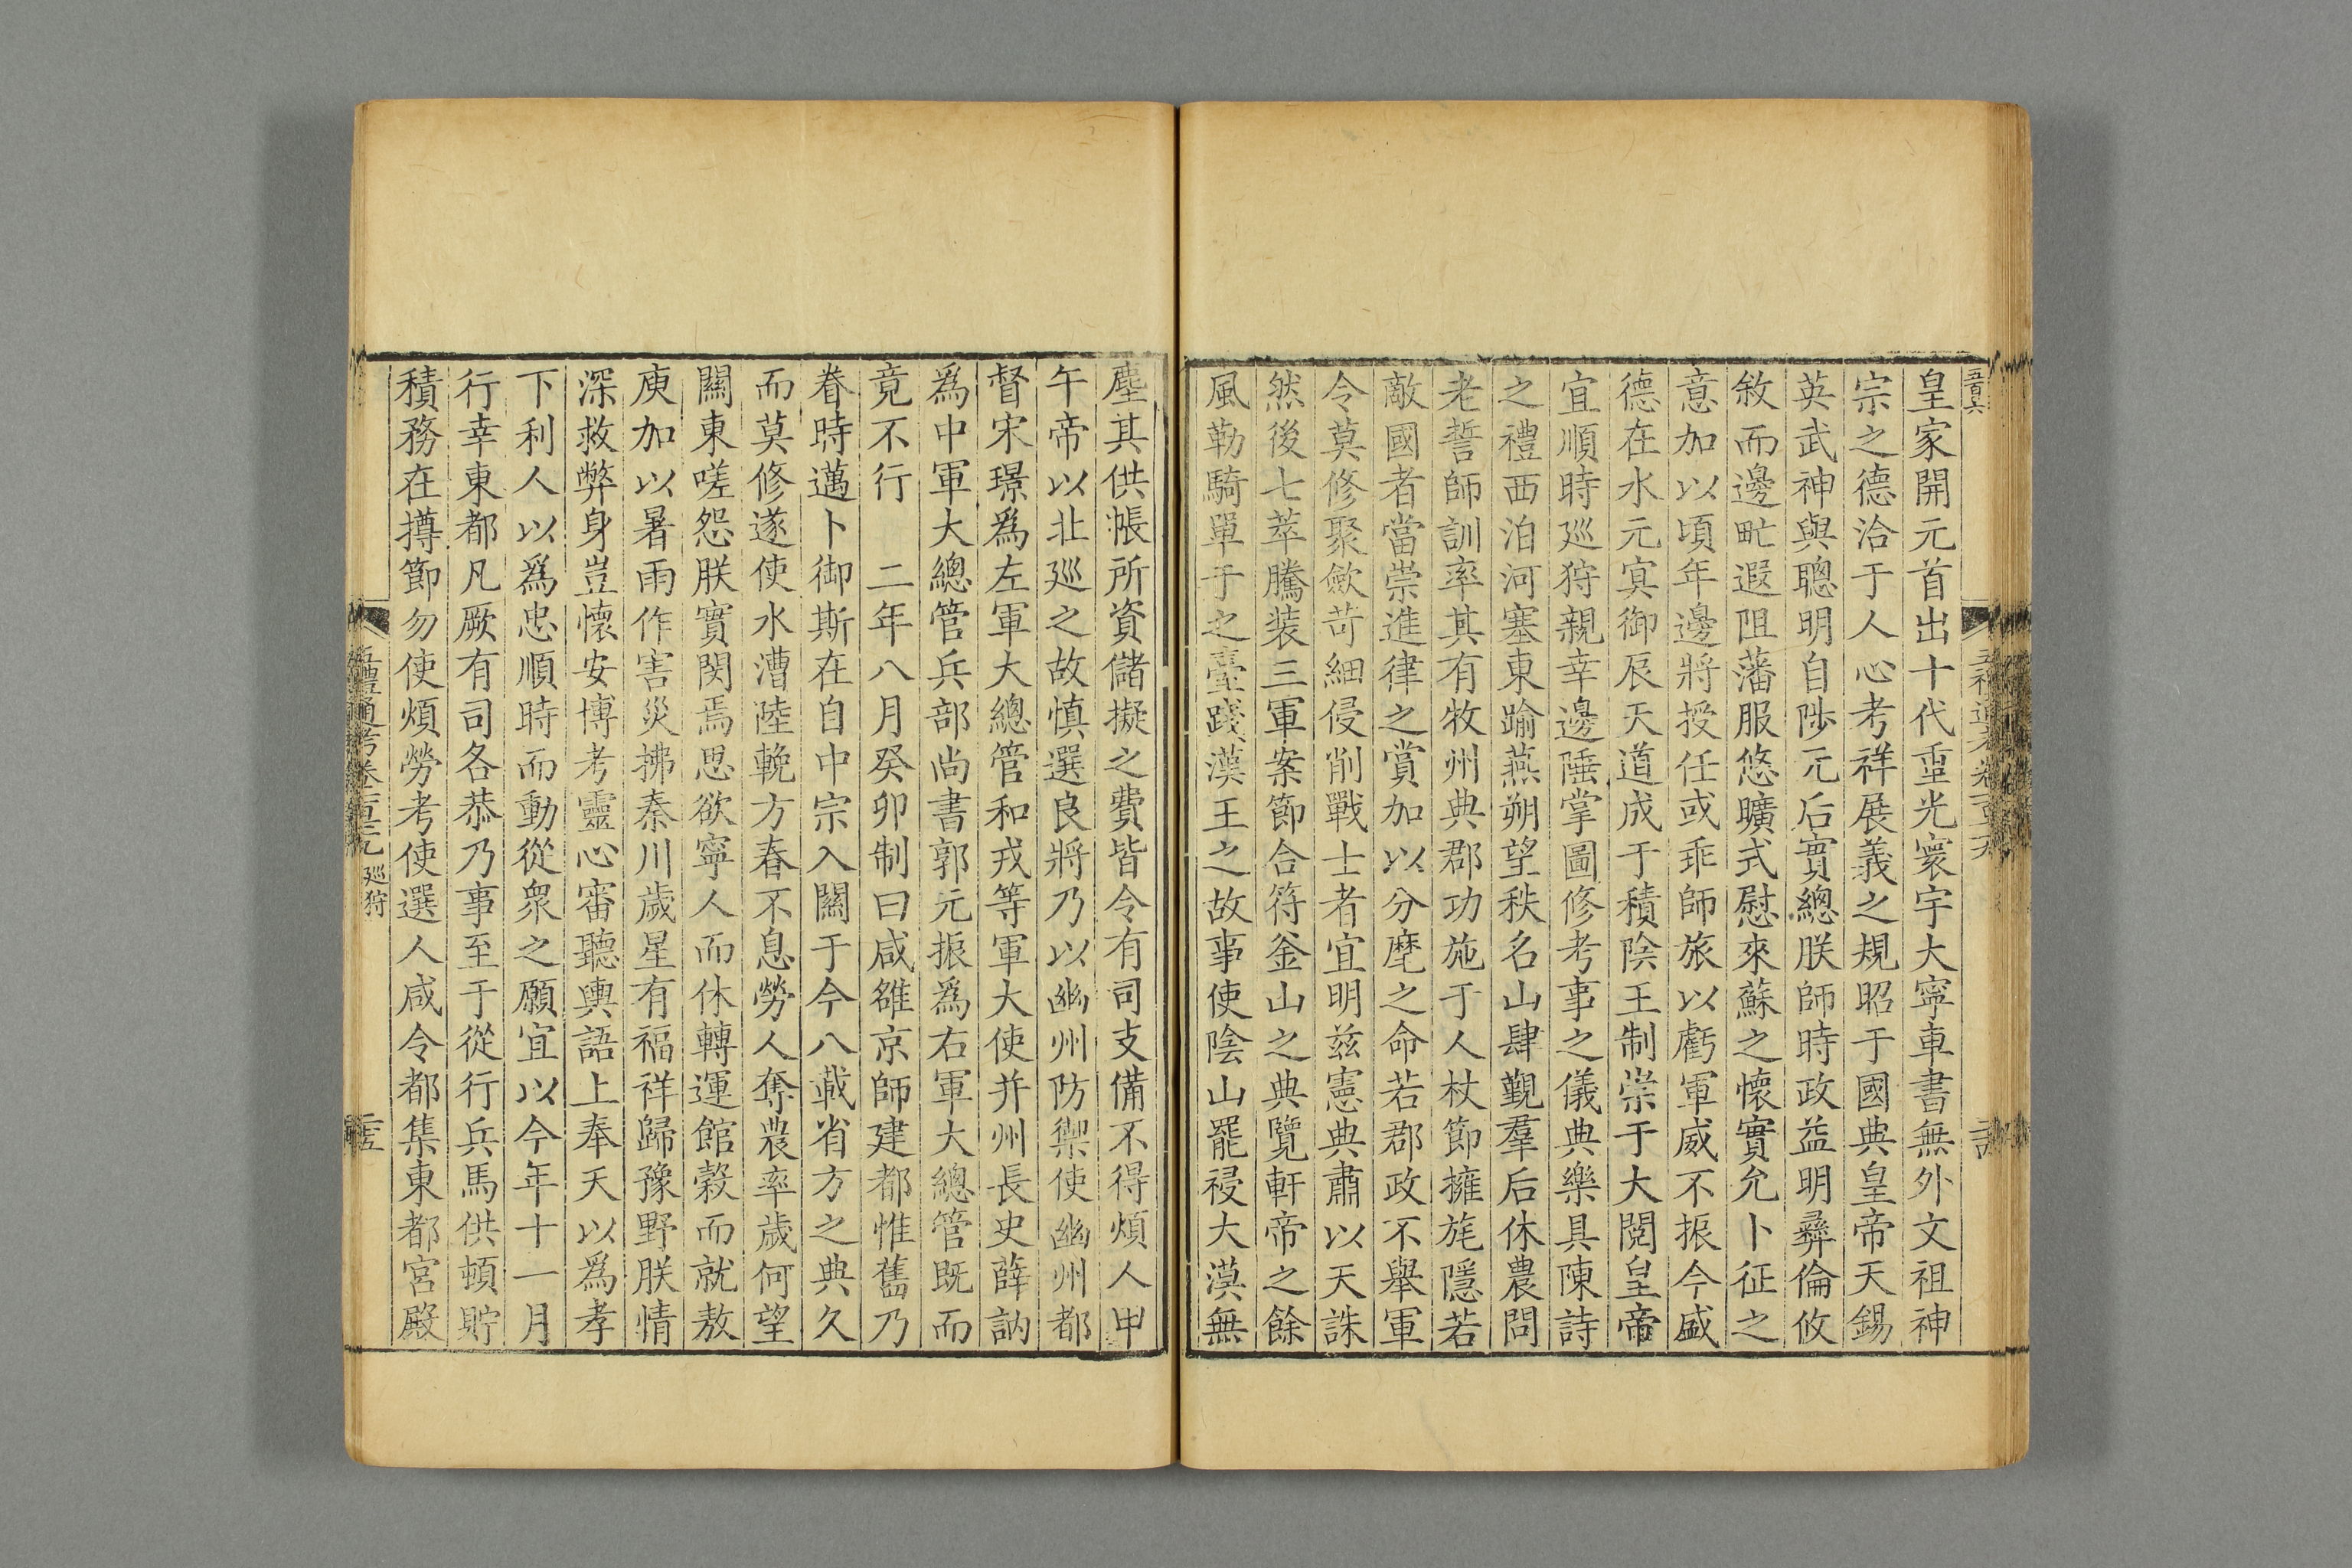 五百六
皇家開元首出十代重光寰宇大寧車書無外文祖神
宗之德洽于人心考祥展義之規昭于國典皇帝天錫
英武神與聰明自陟元后實總朕師時政益明彝倫攸
敘而邊甿遐阻藩服悠曠式慰來蘇之懷實允卜征之
意加以頃年邊將授任或乖師旅以虧軍威不振今盛
德在水元冥御辰天道成于積陰王制崇于大閱皇帝
宜順時巡狩親幸邊陲掌圖修考事之儀典樂具陳詩
之禮西洎河塞東踰燕朔望秩名山肆覲羣后休農問
老誓師訓率其有牧州典郡功施于人杖節擁旄隱若
敵國者當崇進律之賞加以分麾之命若郡政不舉軍
令莫修聚斂苛細侵削戰士者宜明兹憲典肅以天誅
然後七萃騰装三軍案節合符釜山之典覽軒帝之餘
風勒騎單于之臺踐漢王之故事使陰山罷祲大漠無
塵其供帳所資儲擬之費皆令有司支備不得煩人甲
午帝以北巡之故慎選良將乃以幽州防禦使幽州都
督宋璟爲左軍大總管和戎等軍大使并州長史薛訥
爲中軍大總管兵部尚書郭元振爲右軍大總管既而
竟不行 二年八月癸卯制曰咸雒京師建都惟舊乃
眷時邁卜御斯在自中宗入關于今八載省方之典久
而莫修遂使水漕陸輓方春不息勞人奪農率歲何望
關東嗟怨朕實閔焉思欲寧人而休轉運館穀而就敖
庾加以暑雨作害災拂秦川歲星有福祥歸豫野朕情
深救弊身豈懷安博考靈心審聽輿語上奉天以爲孝
下利人以爲忠順時而動從衆之願宜以今年十一月
行幸東都凡厥有司各恭乃事至于從行兵馬供頓貯
積務在撙節勿使煩勞考使選人咸令都集東都宮殿
五禮通考卷 巡狩